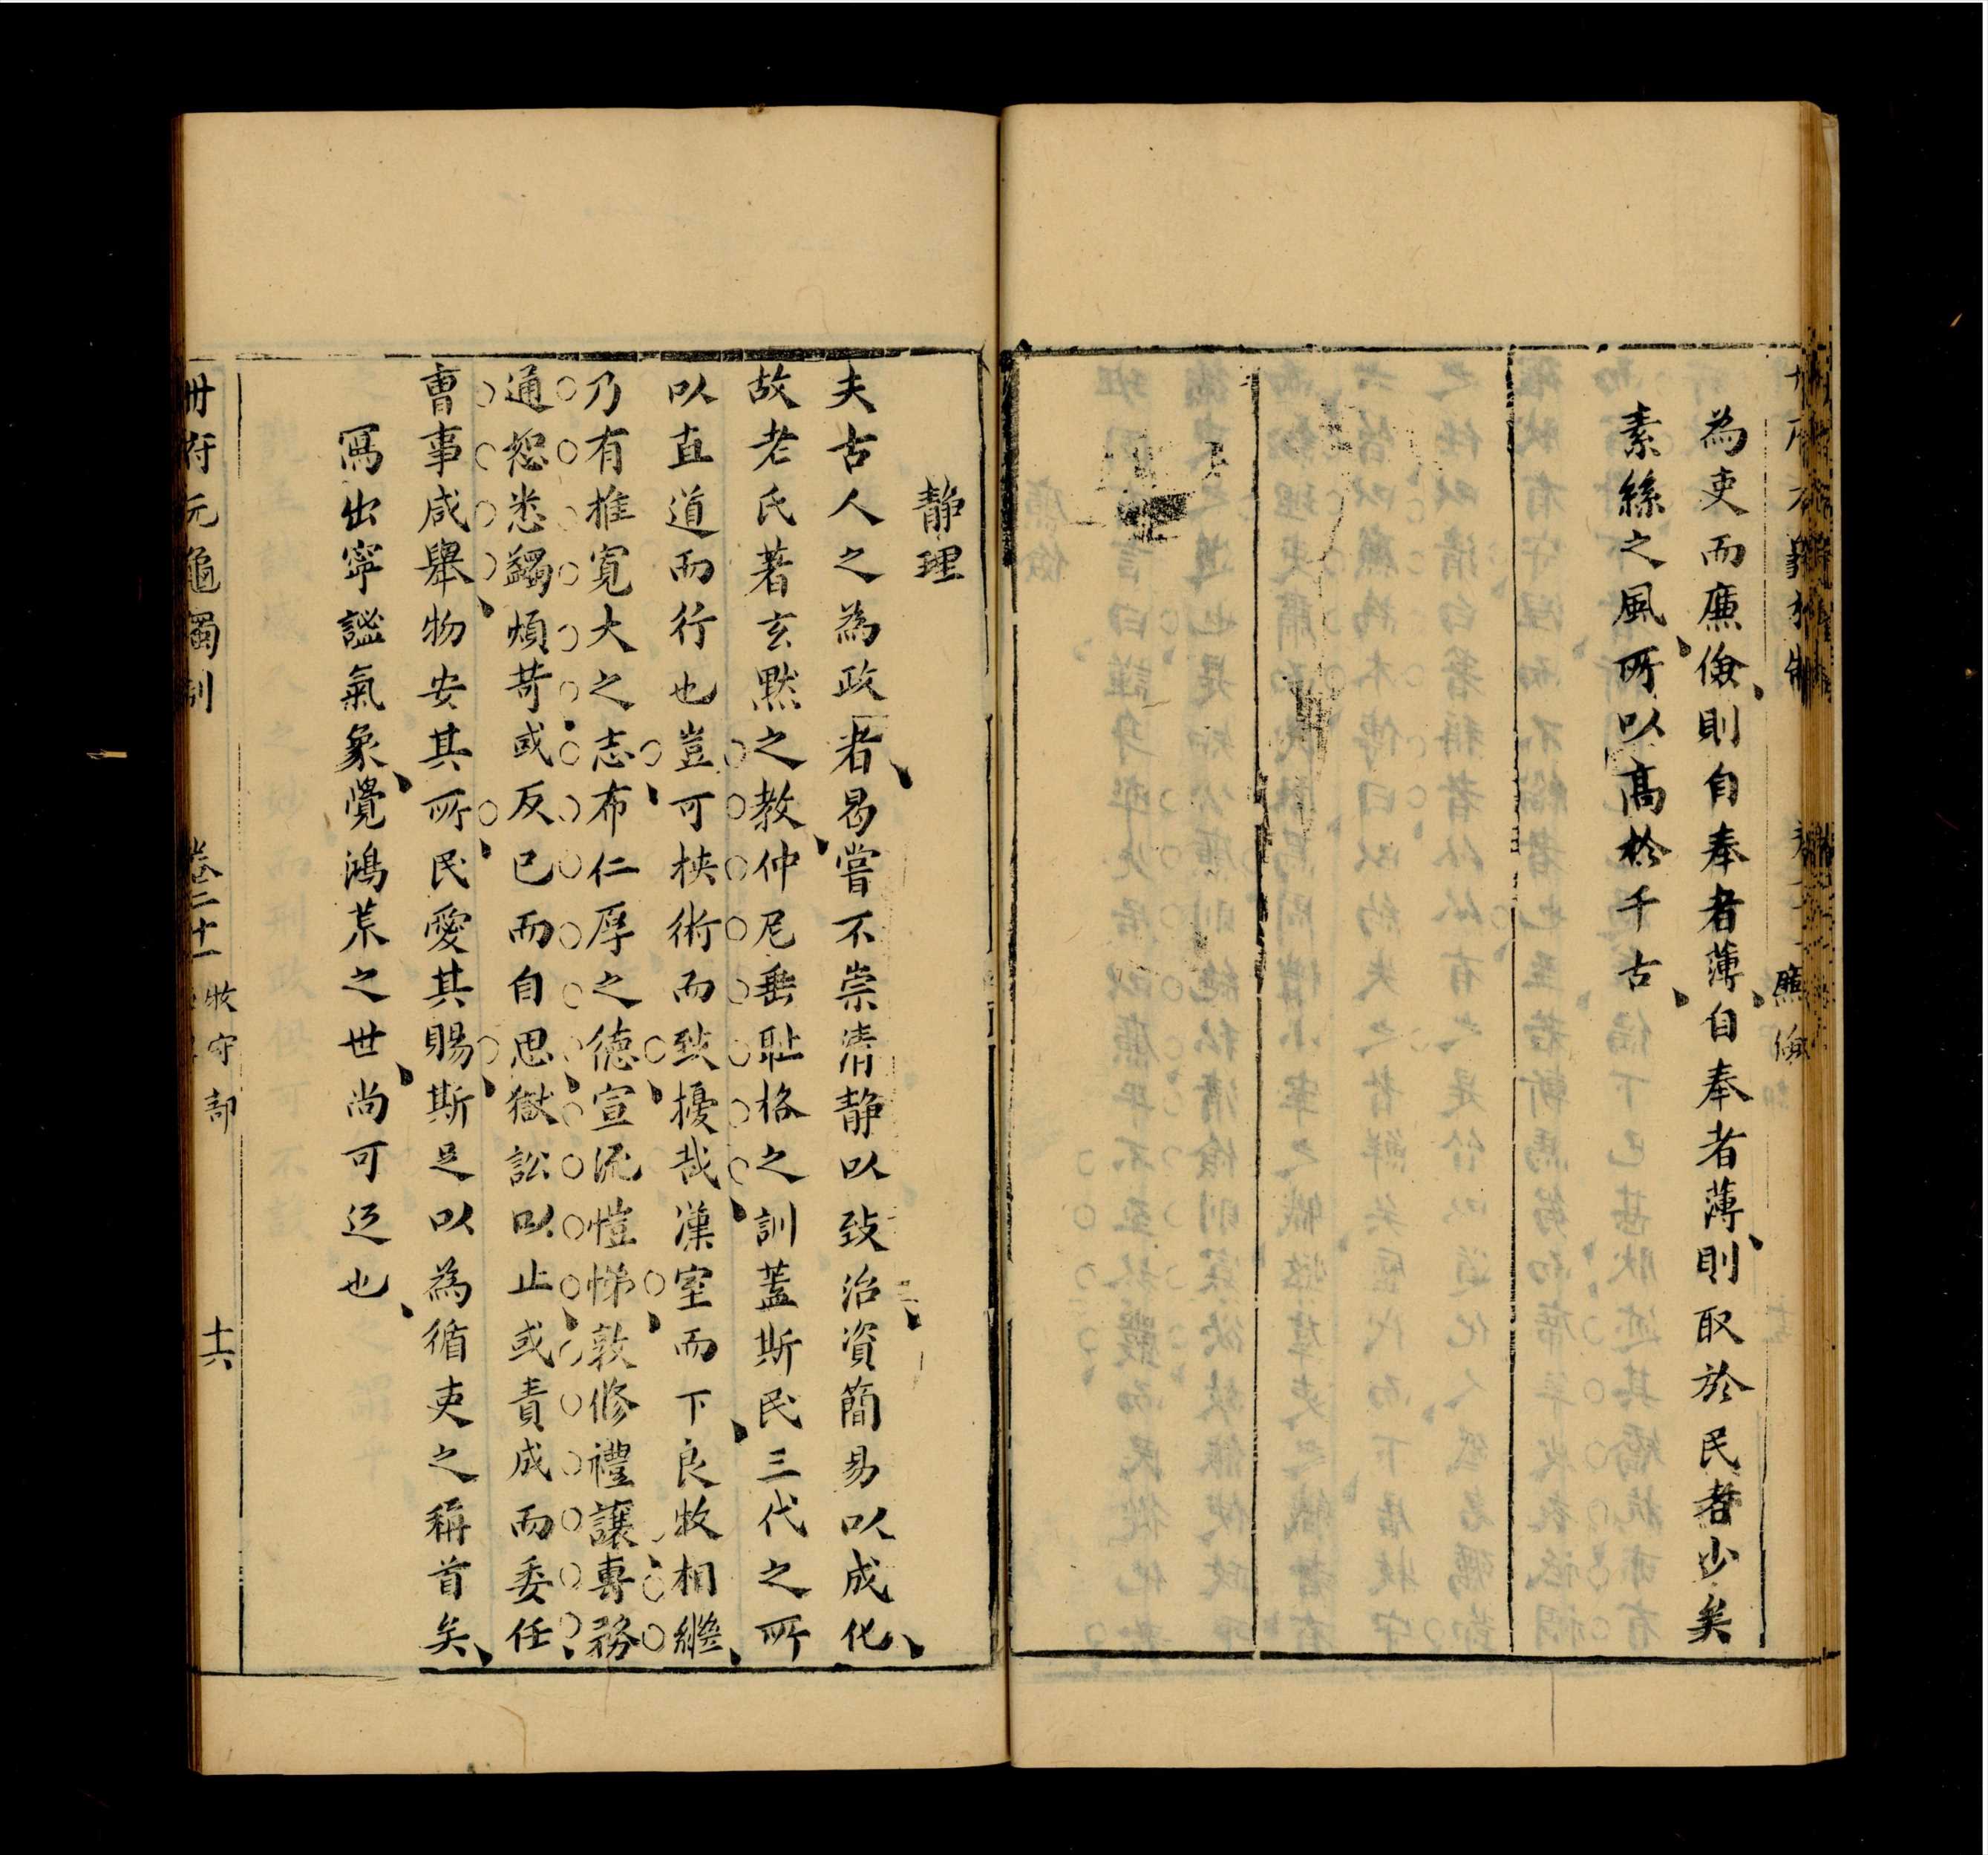 廉儉
為吏而廉儉則自奉者薄自奉者薄則取於民者少矣
素絲之風所以高於千古
靜理
夫古人之為政者曷嘗不崇清靜以致治資簡易以成化
故老氏著玄默之教仲尼垂恥格之訓蓋斯民三代之所
以直道而行也豈可挾術而致擾哉漢室而下良牧相繼
乃有推寬大之志布仁厚之德宣流愷悌敦修禮讓專務
通恕悉蠲煩苛或反已而自思獄訟以止或責成而委任
曹事咸舉物安其所民愛其賜斯足以為循吏之稱首矣
寫出寧謐氣象覺鴻荒之世尚可迟也
冊府元龜獨制 卷二十一 牧守部 十六